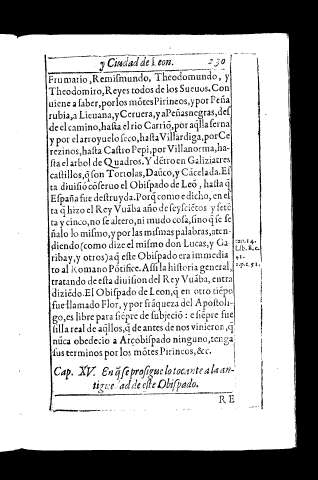 y Ciudad de Leon. 230
Frumario, Remismundo, Theodomundo, y
Theodomiro, Reyes todos de los Sueuos. Con
uiene a saber, por los mõtes Pirineos, y por Peña
rubia, a Lieuana, y Ceruera, y a Peñas negras, des
de el camino, hasta el rio Carriõ, por aq̃lla serna
y por el arroyuelo seco, hasta Villardiga, por Ce
rezinos, hasta Castro Pepi, por Villanorma, ha-
sta el arbol de Quadros. Y dẽtro en Galizia tres
castillos, q̃ son Tortolas, Dauco, y Cãcelada. Es
ta diuisiõ cõseruo el Obispado de Leõ, hasta q̃
España fue destruyda. Porq̃ como e dicho, en es
ta q̃ hizo el Rey Vuãba año de seyscietos y setẽ
ta y cinco, no se altero, ni mudo cosa, sino q̃ se se
ñalo lo mismo, y por las mismas palabras, aten-
diendo (como dize el mismo don Lucas, y Ga
ribay, y otros) a q̃ este Obispado era immedia
to al Romano Põtifice. Assi la historia general,
tratando de esta diuision del Rey Vuãba, entra
diziẽdo. El Obispado de Leon, q̃ en otro tiẽpo
fue llamado Flor, y por frãqueza del Apostoli-
go, es libre para siẽpre de subjeciõ: e siẽpre fue
silla real de aq̃llos, q̃ de antes de nos vinieron, q̃
nũca obedecio a Arçobispado ninguno, tenga
sus terminos por los mõtes Pirineos, &c.
Cap. XV. En q̃ se prosigue lo tocante a la an-
tigue dad de este Obispado.
R E
Lib. 8. c.
41.
2. p. c. 51.